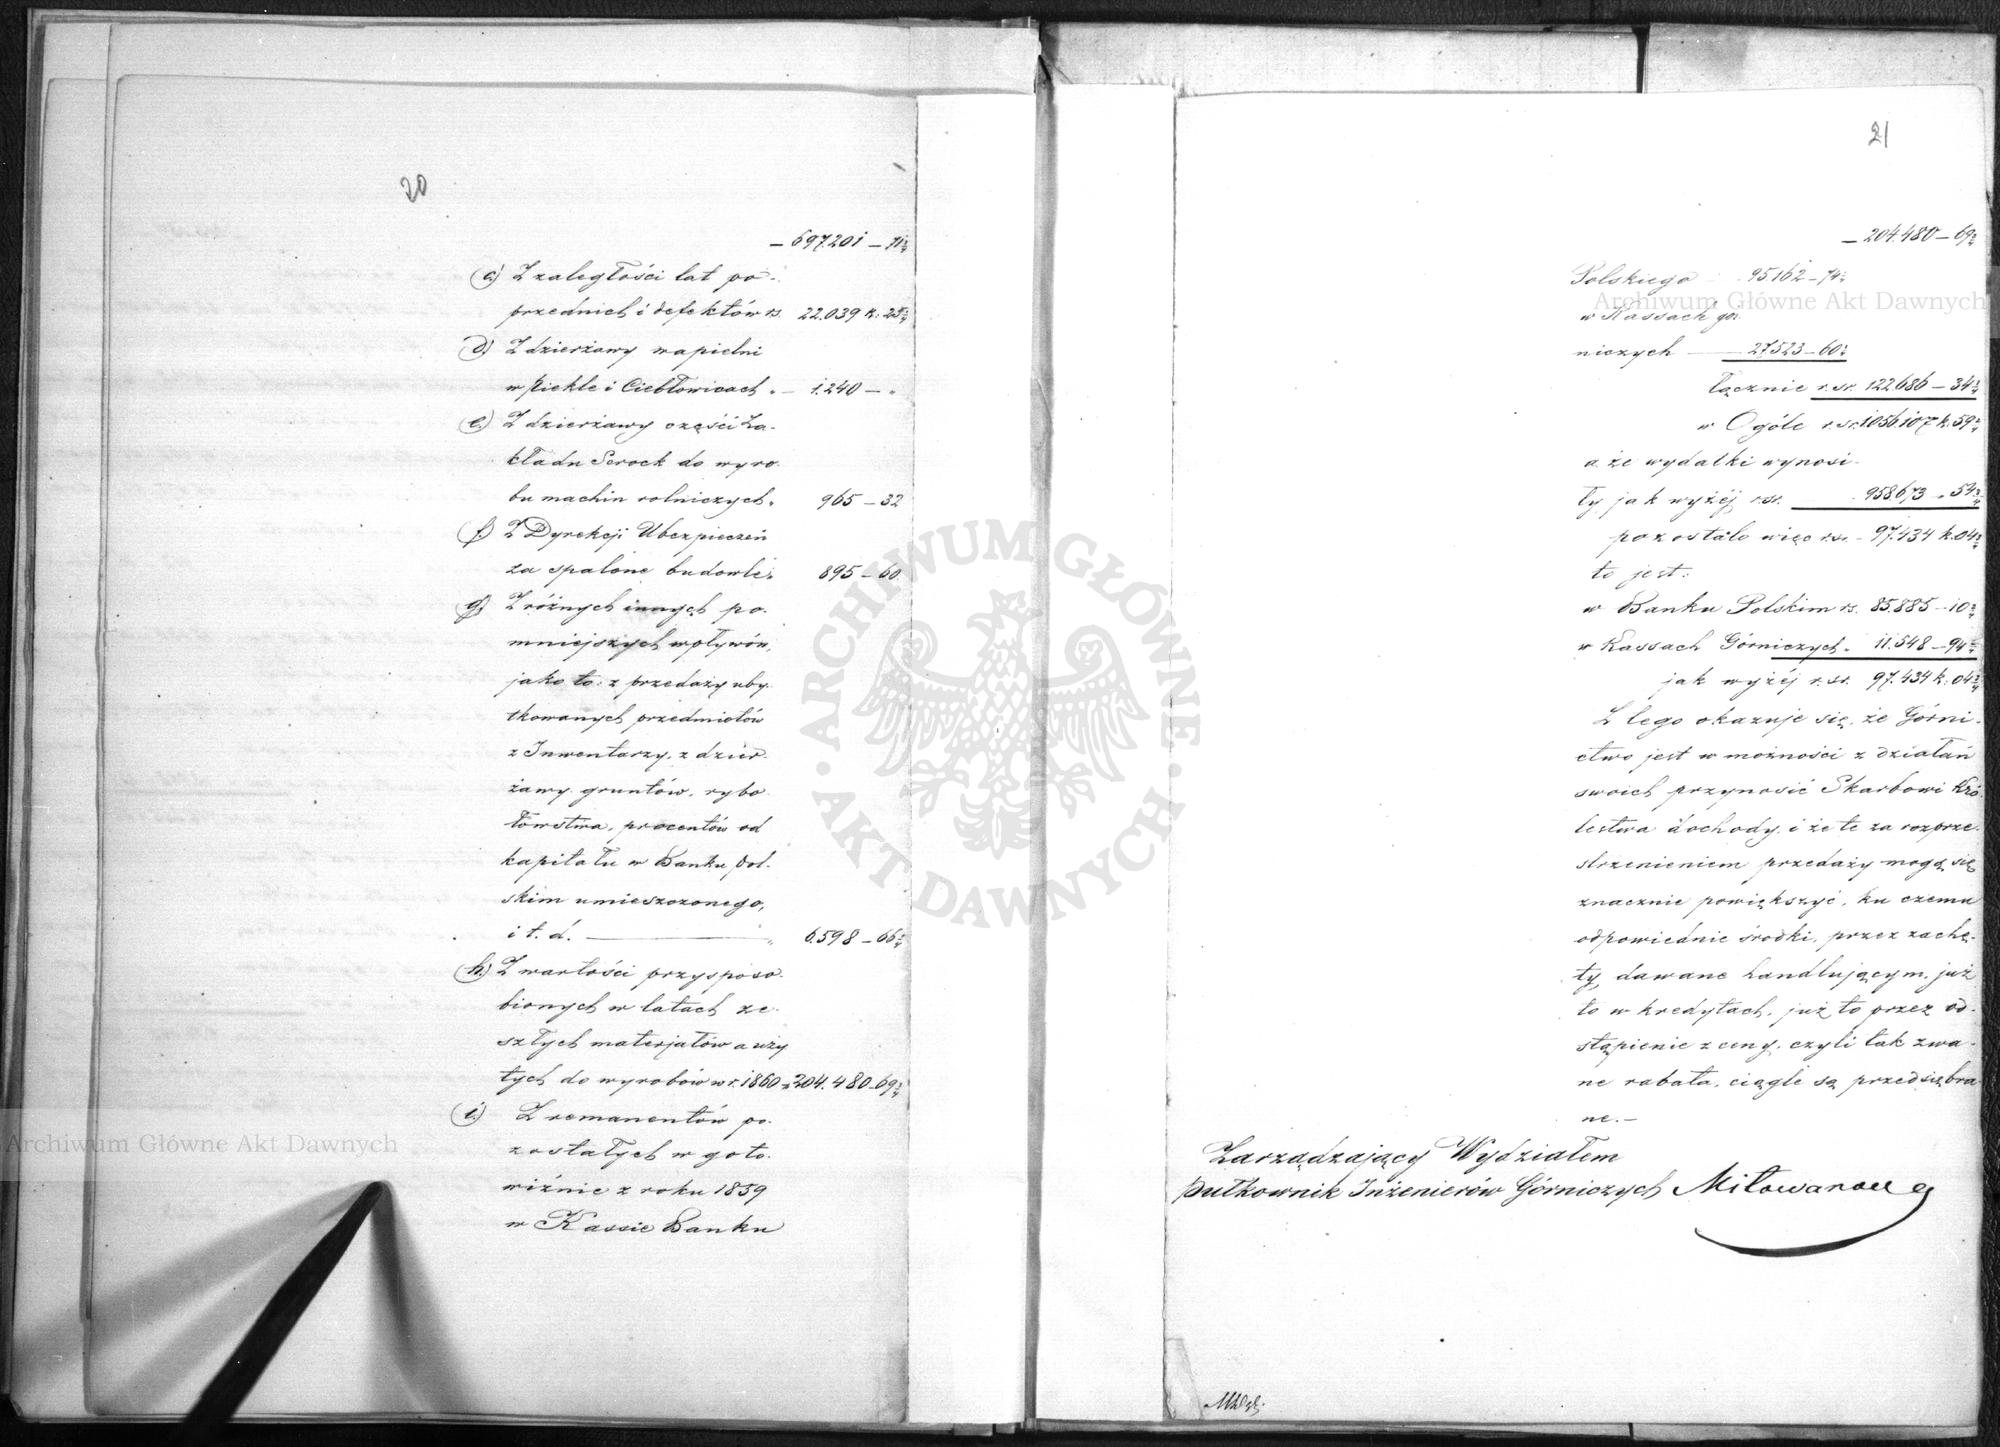 20
— 697.201 — 71¾
c.) Z zaległości lat po-
przednich i defektów rs. 22.039 k. 25¾
d.) Z dzierżawy wapielni
w Piekle i Ciebłowicach „ — 1.240 — „
e.) Z dzierżawy części Za-
kładu Serock do wyro-
bu machin rolniczych „ 965 — 32
f.) Z Dyrekcji Ubezpieczeń
za spalone budowle „ 895 — 60
g.) Z różnych innych po-
mniejszych wpływów,
jako to: z przedaży uby-
tkowanych przedmiotów
z Inwentarzy, z dzier-
żawy gruntów, rybo-
łówstwa, procentów od
kapitału w Banku Pol-
skim umieszczonego,
i t. d. — „ 6.598 — 66¾
h.) Z wartości przysposo-
bionych w latach ze-
szłych materjałów a uży-
tych do wyrobów w r. 1860 „ 204.480 — 69¾
i.) Z remanentów po-
zostałych w goto-
wiźnie z roku 1859
w Kassie Banku
21
— 204.480 — 69¾
Polskiego 95.162 — 74¾
w Kassach gór-
niczych — 27.523 — 60¾
łącznie r. sr. 122.686 — 34¾
w Ogóle r. sr. 1.056.107 k. 59¾
a że wydatki wynosi-
ły jak wyżéj r. sr. — 958.673 „ 54¾
pozostało więc r. sr. — 97.434 k. 04¾
to jest:
w Banku Polskim rs. 85.885 — 10¾
w Kassach Górniczych „ 11.548 — 94¾
jak wyżéj r. sr. 97.434 k. 04¾
Z tego okazuje się, że Górni-
ctwo jest w możności z działań
swoich przynosić Skarbowi Kró-
lestwa dochody, i że te za rozprze-
strzenieniem przedaży mogą się
znacznie powiększyć, ku czemu
odpowiednie środki, przez zachę-
ty dawane handlującym, już
to w kredytach, już to przez od-
stąpienie z ceny, czyli tak zwa-
ne rabata, ciągle są przedsiębra-
ne. —
Zarządzający Wydziałem
Pułkownik Inżenierów Górniczych Miłowanow
Archiwum Główne Akt Dawnych
Archiwum Główne Akt Dawnych
ARCHIWUM GŁÓWNE AKT DAWNYCH